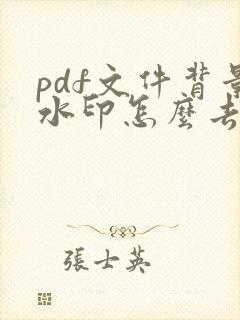 pdf文件背景
水印怎麼去
張士英